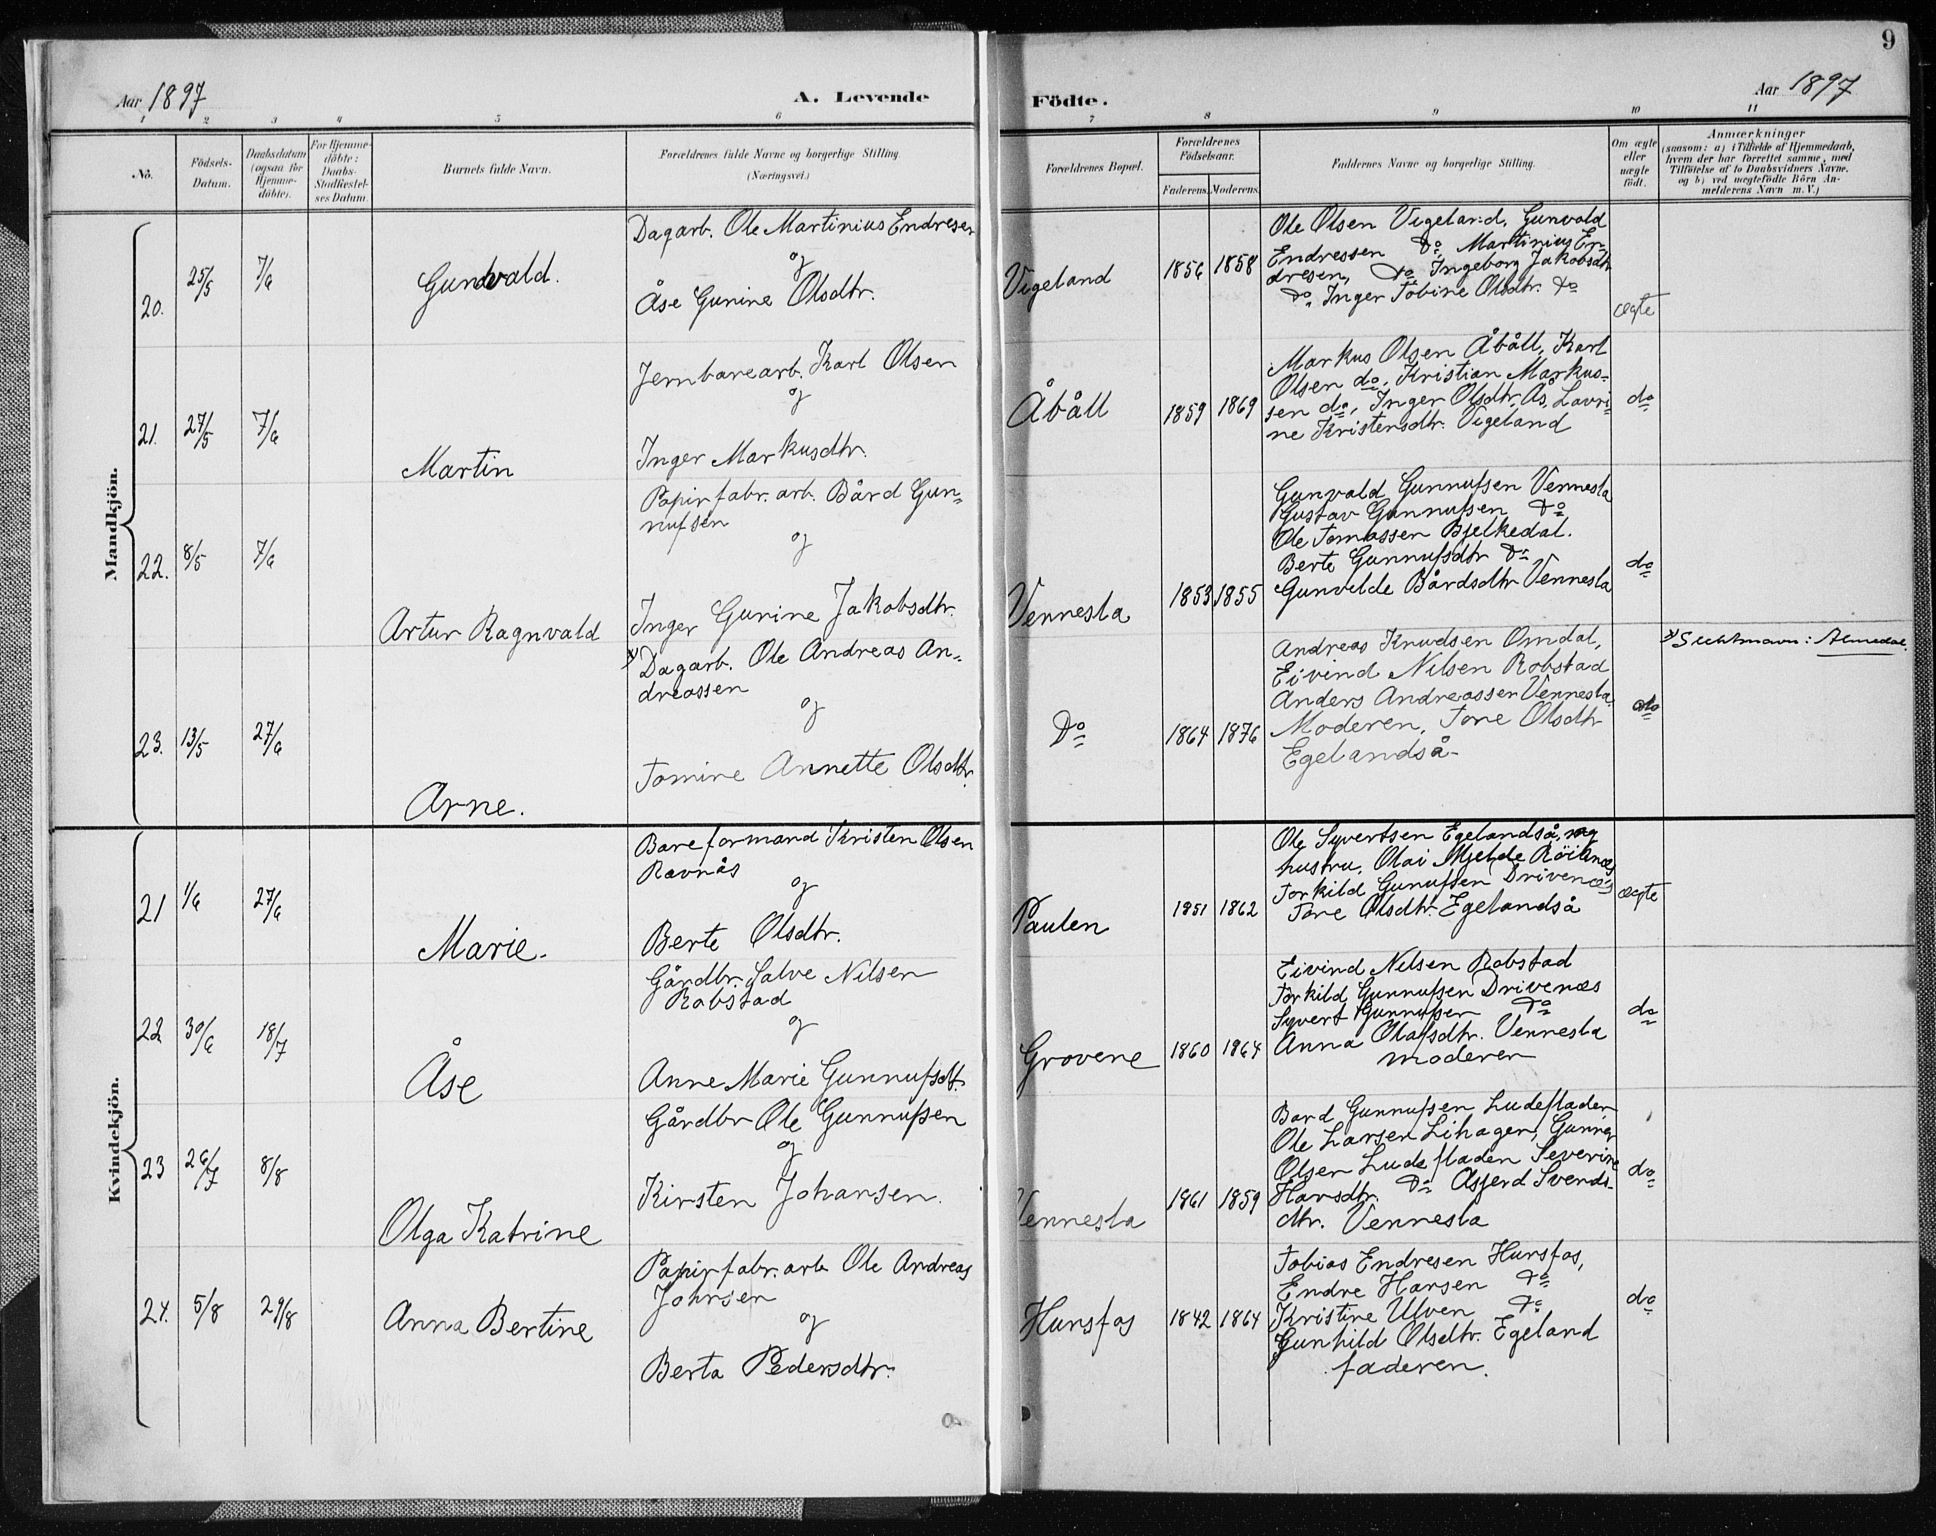 9
Aar 1897
A. Levende
Födte.
Aar 1897
1 2 3 4 5 6 7 8 9 10 11
No.
Födsels-
Datum.
Daabsdatum
(ogsaa for
Hjemme-
döbte).
For Hjemme-
döbte:
Daabs-
Stadfæstel-
ses Datum.
Barnets fulde Navn.
Forældrenes fulde Navne og borgerlige Stilling
(Næringsvei.)
Forældrenes Bopæl.
Forældrenes
Födselsaar.
Faderens. Moderens.
Faddernes Navne og borgerlige Stilling.
Om ægte
eller
uægte
födt.
Anmærkninger
(saasom: a) i Tilfælde af Hjemmedaab,
hvem der har forrettet samme, med
Tilföielse af to Daabsvidners Navne,
og b) ved uægtefödte Börn An-
melderens Navn m. V.)
Mandkjön.
20.
25/5
7/6
Gunvald.
Dagarb. Ole Martinius Endresen
og
Åse Gunine Olsdtr.
Vigeland
1856 1858
Ole Olsen Vigeland, Gunvald
Endressen Do Martinius En-
dresen, Do Ingeborg Jakobsdtr
Do, Inger Tobine Olsdtr. Do
ægte
21.
27/5
7/6
Martin
Jernbanearb. Karl Olsen
og
Inger Markusdtr.
Åbåll
1859 1869
Markus Olsen Åbåll, Karl
Olsen do, Kristian Markus-
sen do, Inger Olsdtr. Ås, Lavri-
ne Kristensdtr. Vigeland
do
22.
8/5
7/6
Artur Ragnvald
Papirfabr. arb. Bård Gun-
nufsen
og
Inger Gunine Jakobsdtr.
Vennesla
1853 1855
Gunvald Gunnufsen Vennesla
Gustav Gunnufsen Do
Ole Tomassen Bjelkedal.
Berte Gunnufsdtr Do
Gunvelde Bårdsdtr Vennesla
do
23.
13/5
27/6
Arne.
x) Dagarb. Ole Andreas An-
dreassen
og
Tomine Annette Olsdtr.
Do
1864 1876
Andreas Knudsen Omdal,
Eivind Nilsen Robstad
Anders Andreassen Vennesla,
Moderen, Tone Olsdtr
Egelandså
do
x) Slektsnavn: Almedal.
Kvindekjön.
21
1/6
27/6
Marie.
Baneformand Kristen Olsen
Ravnås
og
Berte Olsdtr.
Paulen
1851 1862
Ole Syvertsen Egelandså, og
hustru, Olai Mjelde Röilnæs
Torkild Gunufsen Drivenæs
Tone Olsdtr. Egelandså
ægte
22
30/6
18/7
Åse
Gårdbr. Salve Nilsen
Robstad
og
Anne Marie Gunnufsdt.
Grovene
1860 1864
Eivind Nilsen Robstad
Torkild Gunnufsen Drivenæs
Syvert Gunnufsen Do
Anna Olafsdtr. Vennesla
moderen
do
23
26/7
8/8
Olga Katrine
Gårdbr Ole Gunnufsen
og
Kirsten Johansen.
Vennesla
1861 1859
Bård Gunnufsen Ludefladen
Ole Larsen Lihagen, Gunner
Olsen Ludefladen Severine
Hansdtr. Do Asjerd Svends-
dtr. Vennesla
do
24.
5/8
29/8
Anna Bertine
Papirfabr. arb Ole Andreas
Johnsen
og
Berta Pedersdtr.
Hunsfos
1842 1864
Tobias Endresen Hunsfos,
Endre Hansen Do
Kristine Ulven Do
Gunhild Olsdtr. Egeland
faderen.
do